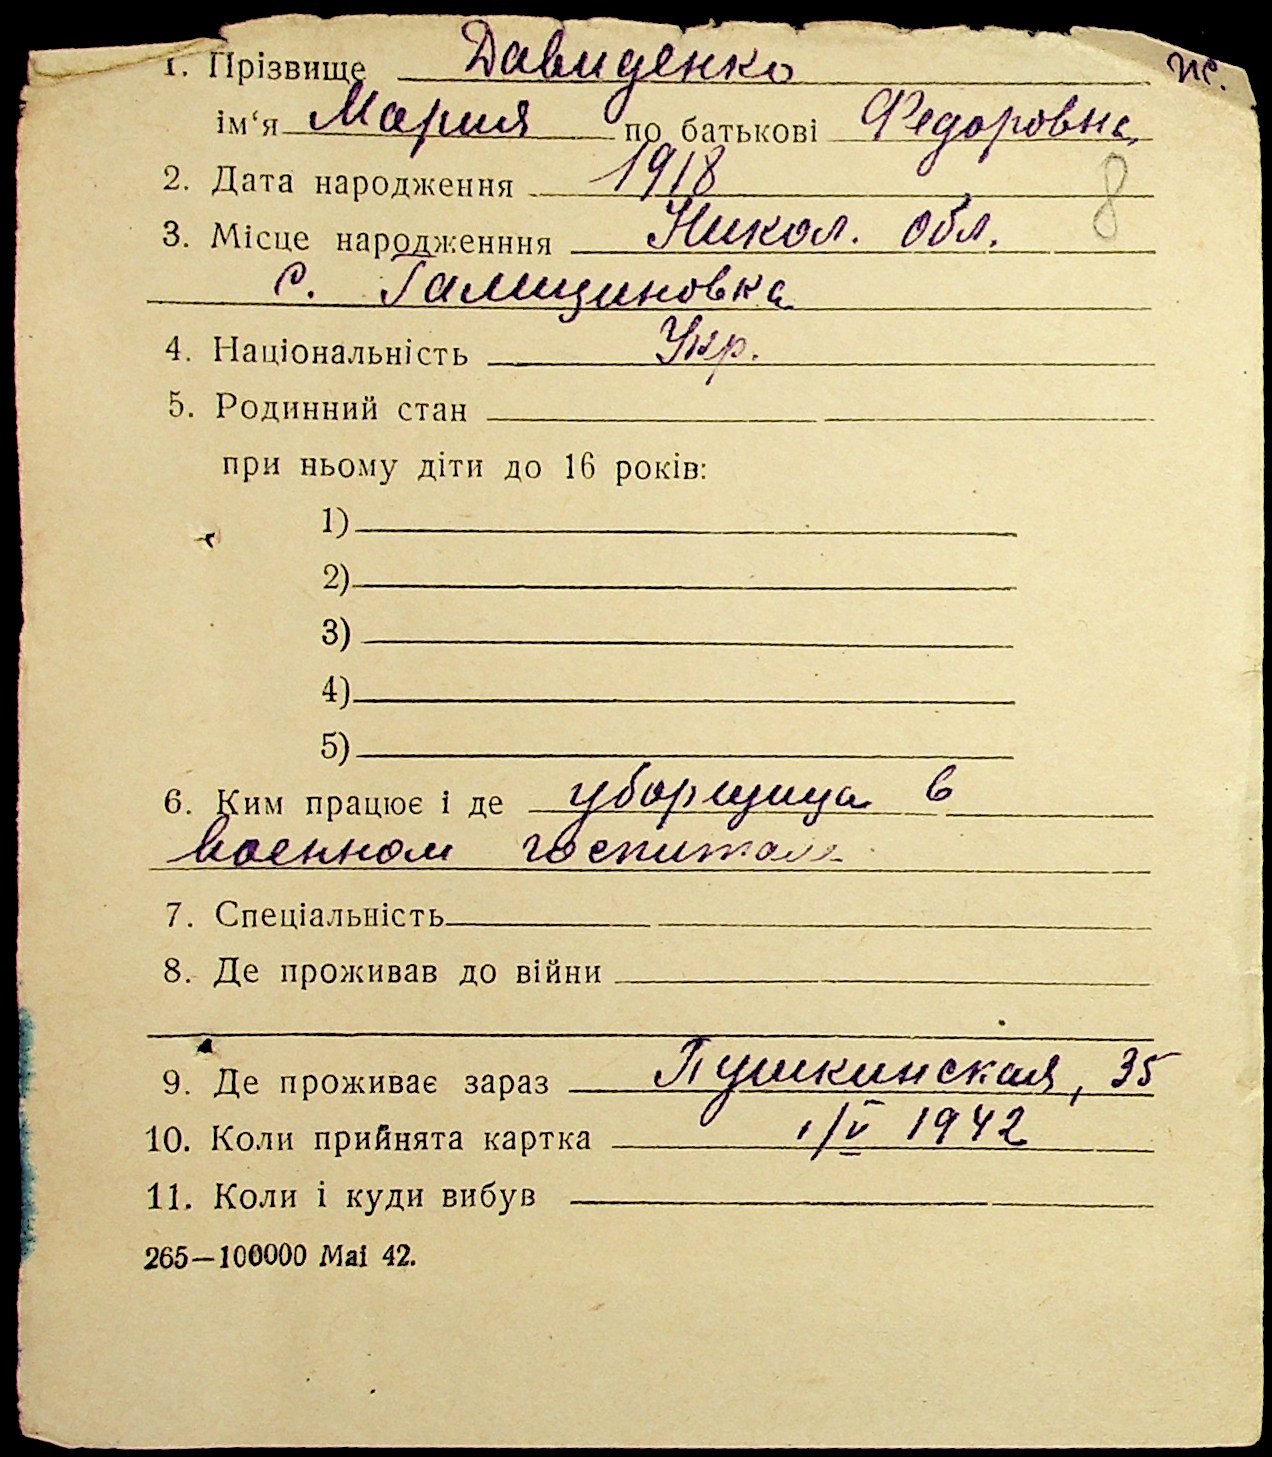 1. Прізвище Давиденко
ім‘я Мария по батькові Федоровна
2. Дата народження 1918
8
3. Місце народженння Никол. обл.
с. Галициновка
4. Національність Укр.
5. Родинний стан
при ньому діти до 16 років:
1)
2)
3)
4)
5)
6. Ким працює і де уборщица в
военном госпитале
7. Спеціальність
8. Де проживав до війни
9. Де проживає зараз Пушкинская, 35
10. Коли прийнята картка 1/V 1942
11. Коли і куди вибув
265—100000 Mai 42.